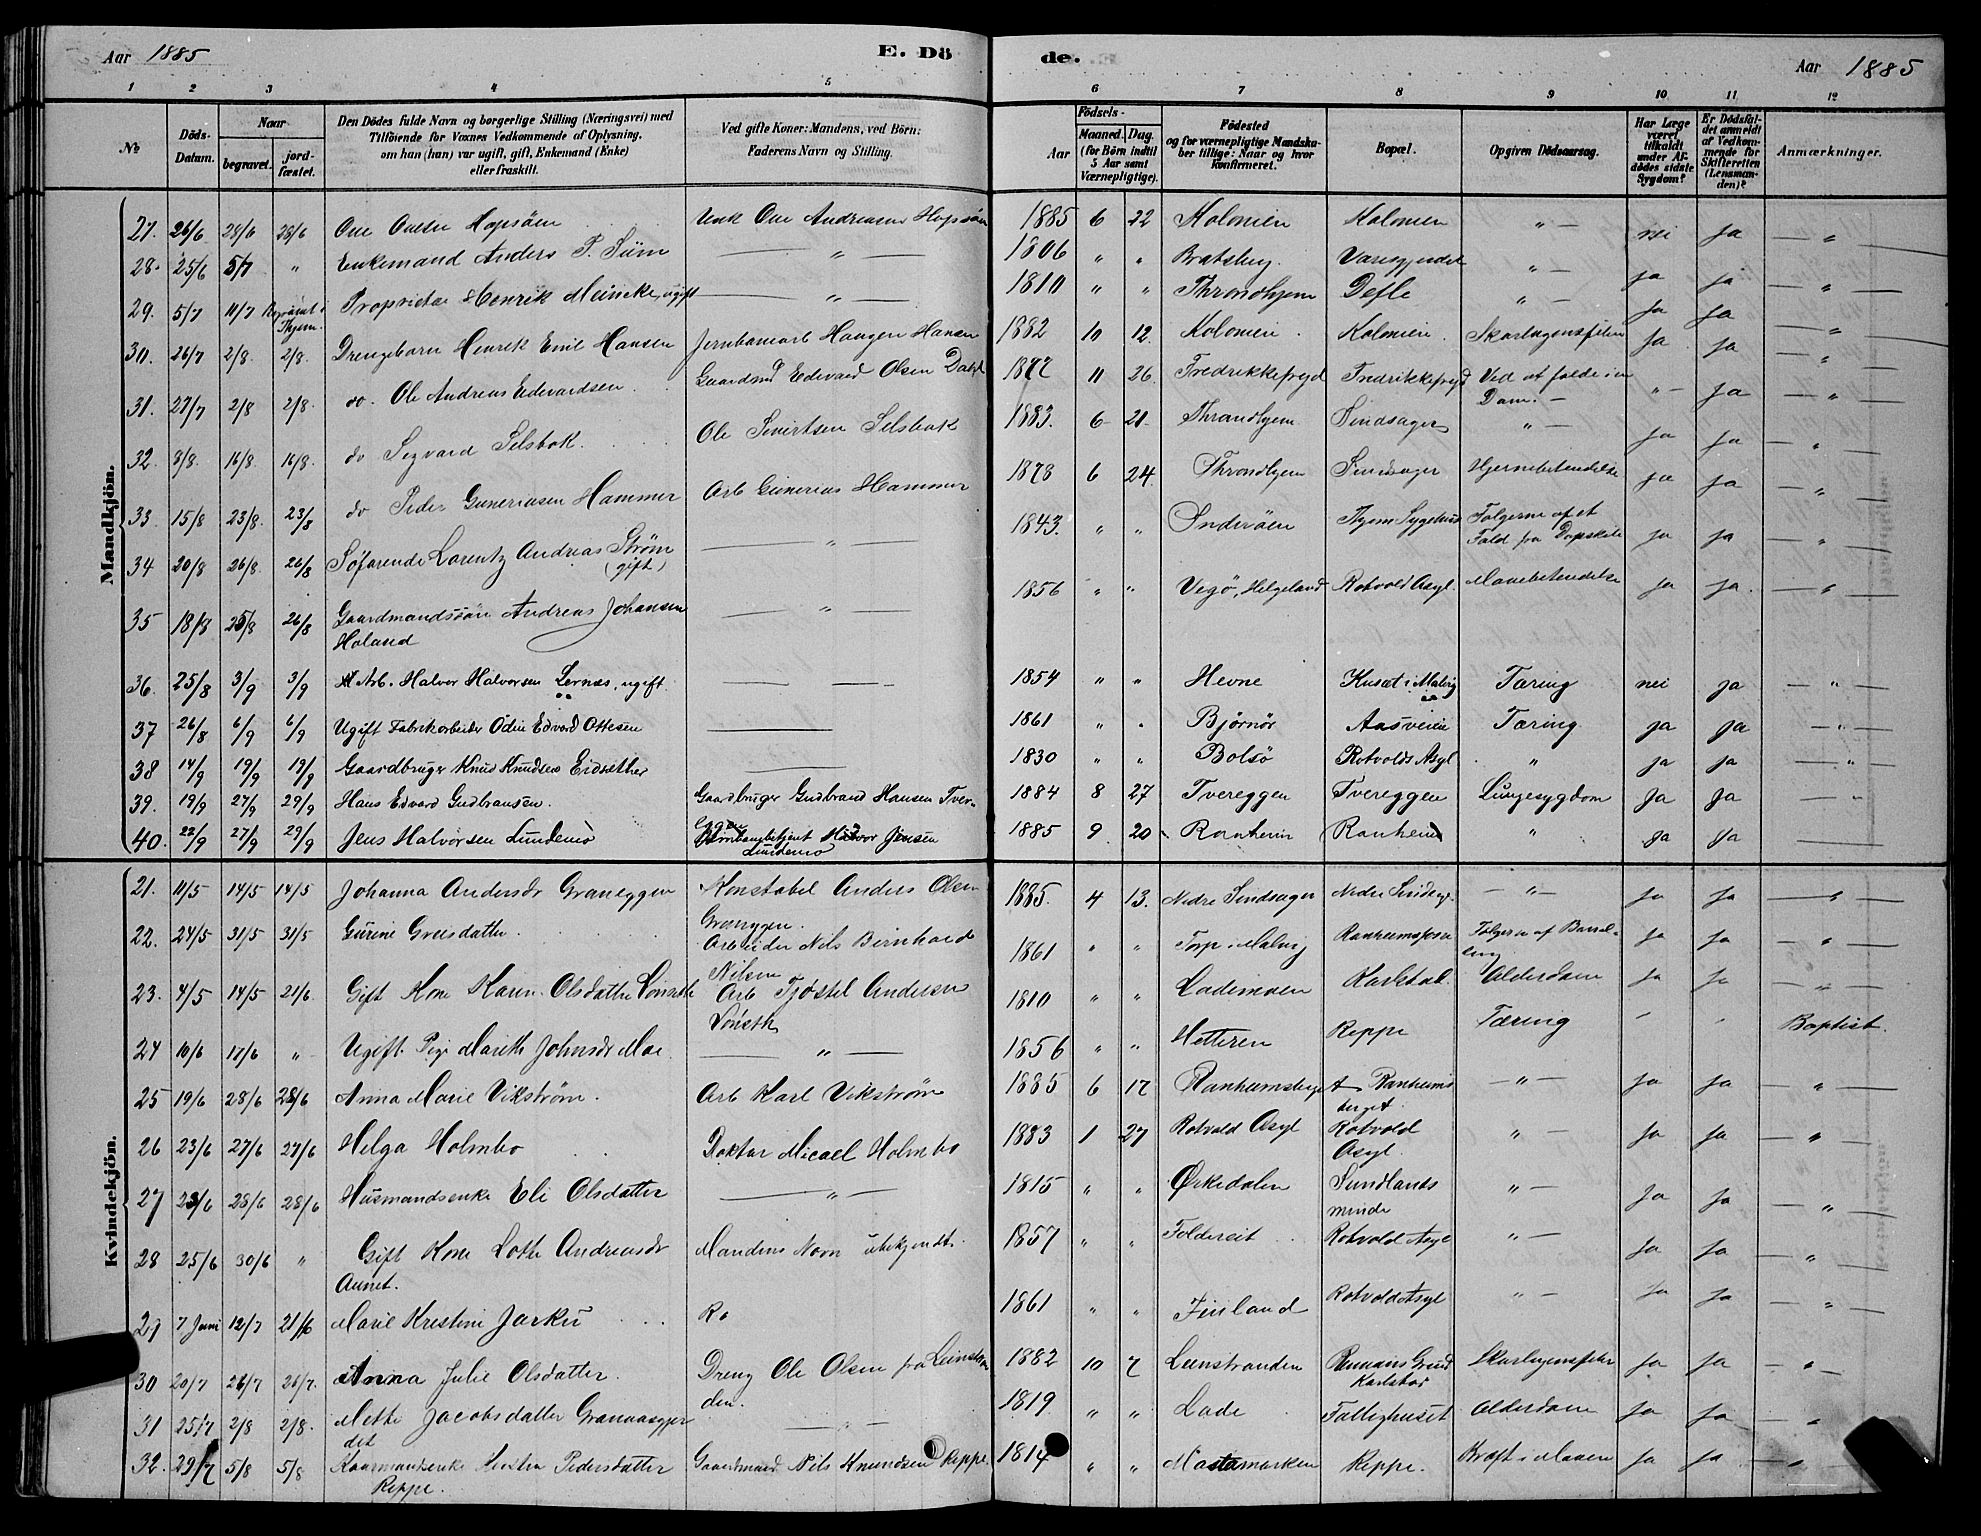 Aar 1885 E. Dö de. Aar 1885
1 2 3 4 5 6 7 8 9 10 11 12
No
Döds-Datum.
Naar
begravet.
jord-fæstet.
Den Dödes fulde Navn og borgerlige Stilling (Næringsvei) med
Tilföiende for Voxnes Vedkommende af Oplysning,
om han (hun) var ugift, gift, Enkemand (Enke)
eller fraskilt.
Ved gifte Koner: Mandens, ved Börn:
Faderens Navn og Stilling.
Födsels-
Aar
Maaned. Dag.
(for Börn indtil
5 Aar samt
Værnepligtige).
Födested
og for værnepligtige Mandska-
ber tillige: Naar og hvor
konfirmeret.
Bopæl.
Opgiven Dödsaarsag.
Har Læge
været
tilkaldt
under Af-
dödes sidste
Sygdom?
Er Dödsfal-
det anmeldt
af Vedkom-
mende for
Skifteretten
(Lensman-
den)?
Anmærkninger.
Mandkjön.
27. 26/6 28/6 28/6 Ole Andreas Hopsöen 1885 6 22 Kolonien Kolonien — " — nei ja — " —
28. 25/6 5/7 " Enkemand Anders P. Siim — " — 1806 " " Bratsberg " — ja ja — " —
29. 5/7 11/7 Thjem. Proprietær Henrik Meincke, ugift — " — 1810 " " Throndhjem Defle " — ja ja — " —
30. 26/7 2/8. 2/8. Drengebarn Henrik Emil Hansen Jernbanearb Haagen Hansen 1882 10 12. Kolonien. Kolonien. Skarlagensfeber ja ja — " —
31. 27/7 2/8 2/8. do. Ole Andreas Edevardsen Gaardmd Edevard Olsen 11 26. Fredrikkefryd Fredrikkefryd Ved at falde i en
Dam. — " — ja — " —
32. 3/8. 16/8. 16/8. do Sigvard Selsbak. Ole Sivertsen Selsbak 1883. 6 21 Throndhjem Sindsager " — ja ja — " —
33. 15/8 23/8. 23/8 do Peder Guneriusen Hammer Arb Gunerius Hammer 1878 6 24. Throndhjem Sindsager Hjernebetendelse ja ja — " —
34 20/8 26/8. 26/8 Söfarende Lorentz Andreas Strøm
(gift) — " — 1843. " " Inderöen Thjems Sygehus Følgerne af et
Fald fra ja ja — " —
35 18/8 25/8 26/8 Gaardmandssön Andreas Johansen
Holand — " — 1856 " " Vegö, Helgeland Rotvold Asyl. Mavebetendelse ja ja. — " —
36. 25/8 3/9 3/9 Arb. Halvor Halvorsen Lernes, ugift. — — 1854 " " Hevne Husæt i Malvig Tæring nei ja — " —
37 26/8 6/9 6/9 Ugift Fabrikarbeider Odin Edvard Ottesen — 1861 " " Bjørnør Aasveien Tæring ja ja — " —
38 14/9 19/9 19/9 Gaardbruger Knud Knudsen Eidsæther — 1830 " " Bolsö Rotvolds Asyl " ja ja — " —
39. 19/9 27/9 29/9 Hans Edvard Gudbransen. Gaardbruger Gudbrand Hansen Tver-
eggen 1884 8 27 Tvereggen Tvereggen Lungesygdom ja ja — " —
40. 22/9 27/9 29/9 Jens Halvorsen Lundemo Jernbanebetjent Halvor Jensen
Lundemo 1885 9 20 Ranheim Ranheim " ja ja —
Kvindekjön.
21. 11/5 14/5 14/5 Johanna Andersdr Graneggen Konstabel Anders Olsen
1885. 4 13. Nedre Sindsager Nedre Sindsag. — " — ja ja — " —
22. 24/5 31/5 31/5 Gurine Greisdatter. Arbeider Nils Bernhard
Nilsen 1861 " " Torp i Malvig Følgerne af Barsel-
seng ja ja — " —
23. 4/5 14/5 21/6. Gift Kone Karen Olsdatter Arb Tjöstel Andersen
1810 " " Lademoen Karlstad. Alderdom ja ja — " —
24 10/6 17/6 " Ugift Pige Mareth Johnsdr Moe. — " — 1856 " " Hitteren Reppe Tæring " " Baptist.
25 19/6 28/6 28/6 Anna Marie Vikstrøm. Arb Karl Vikstrøm 1885 6 17 Ranheimsberget Ranheims
berget. — " — ja ja — " —
26 23/6 27/6 27/6 Helga Holmbo Doktor Micael Holmbo 1883 1 27 Rotvold Asyl Rotvold
Asyl. " — ja ja — " —
27 23/6 28/6 28/6 Husmandsenke Eli Olsdatter — " — 1815 " " Ørkedalen Sundlands
minde " — ja ja — " —
28 25/6 30/6 " Gift Kone Lotte Andreasdr
Aunet. Mandens Navn ubekjendt. 1857 " " Foldereit Rotvold Asyl " — ja ja — " —
29 7 Juni 12/7 21/6 Marie Kristine Jarku 1861 " " Finland Rotvold Asyl " — ja ja — " —
30 20/7 26/7 26/7. Anna Julie Olsdatter. Dreng Ole Olsen fra Leinstran
den. 1882 10 7 Leinstranden Grund
Karlstad Skarlagensfeber ja ja — " —
31 25/7 2/8 2/8. Mette Jacobsdatter Granaasgjer
det — " — 1819 " " Lade Fattighuset Alderdom ja ja — " —
32. 29/7 5/8 5/8 Kaarmandsenke Kirsten Pedersdatter
Reppe. Gaardmand Nils Knudsen Reppe. 1814 " " Mostamarken Reppe. Kræft i Maven ja ja — " —